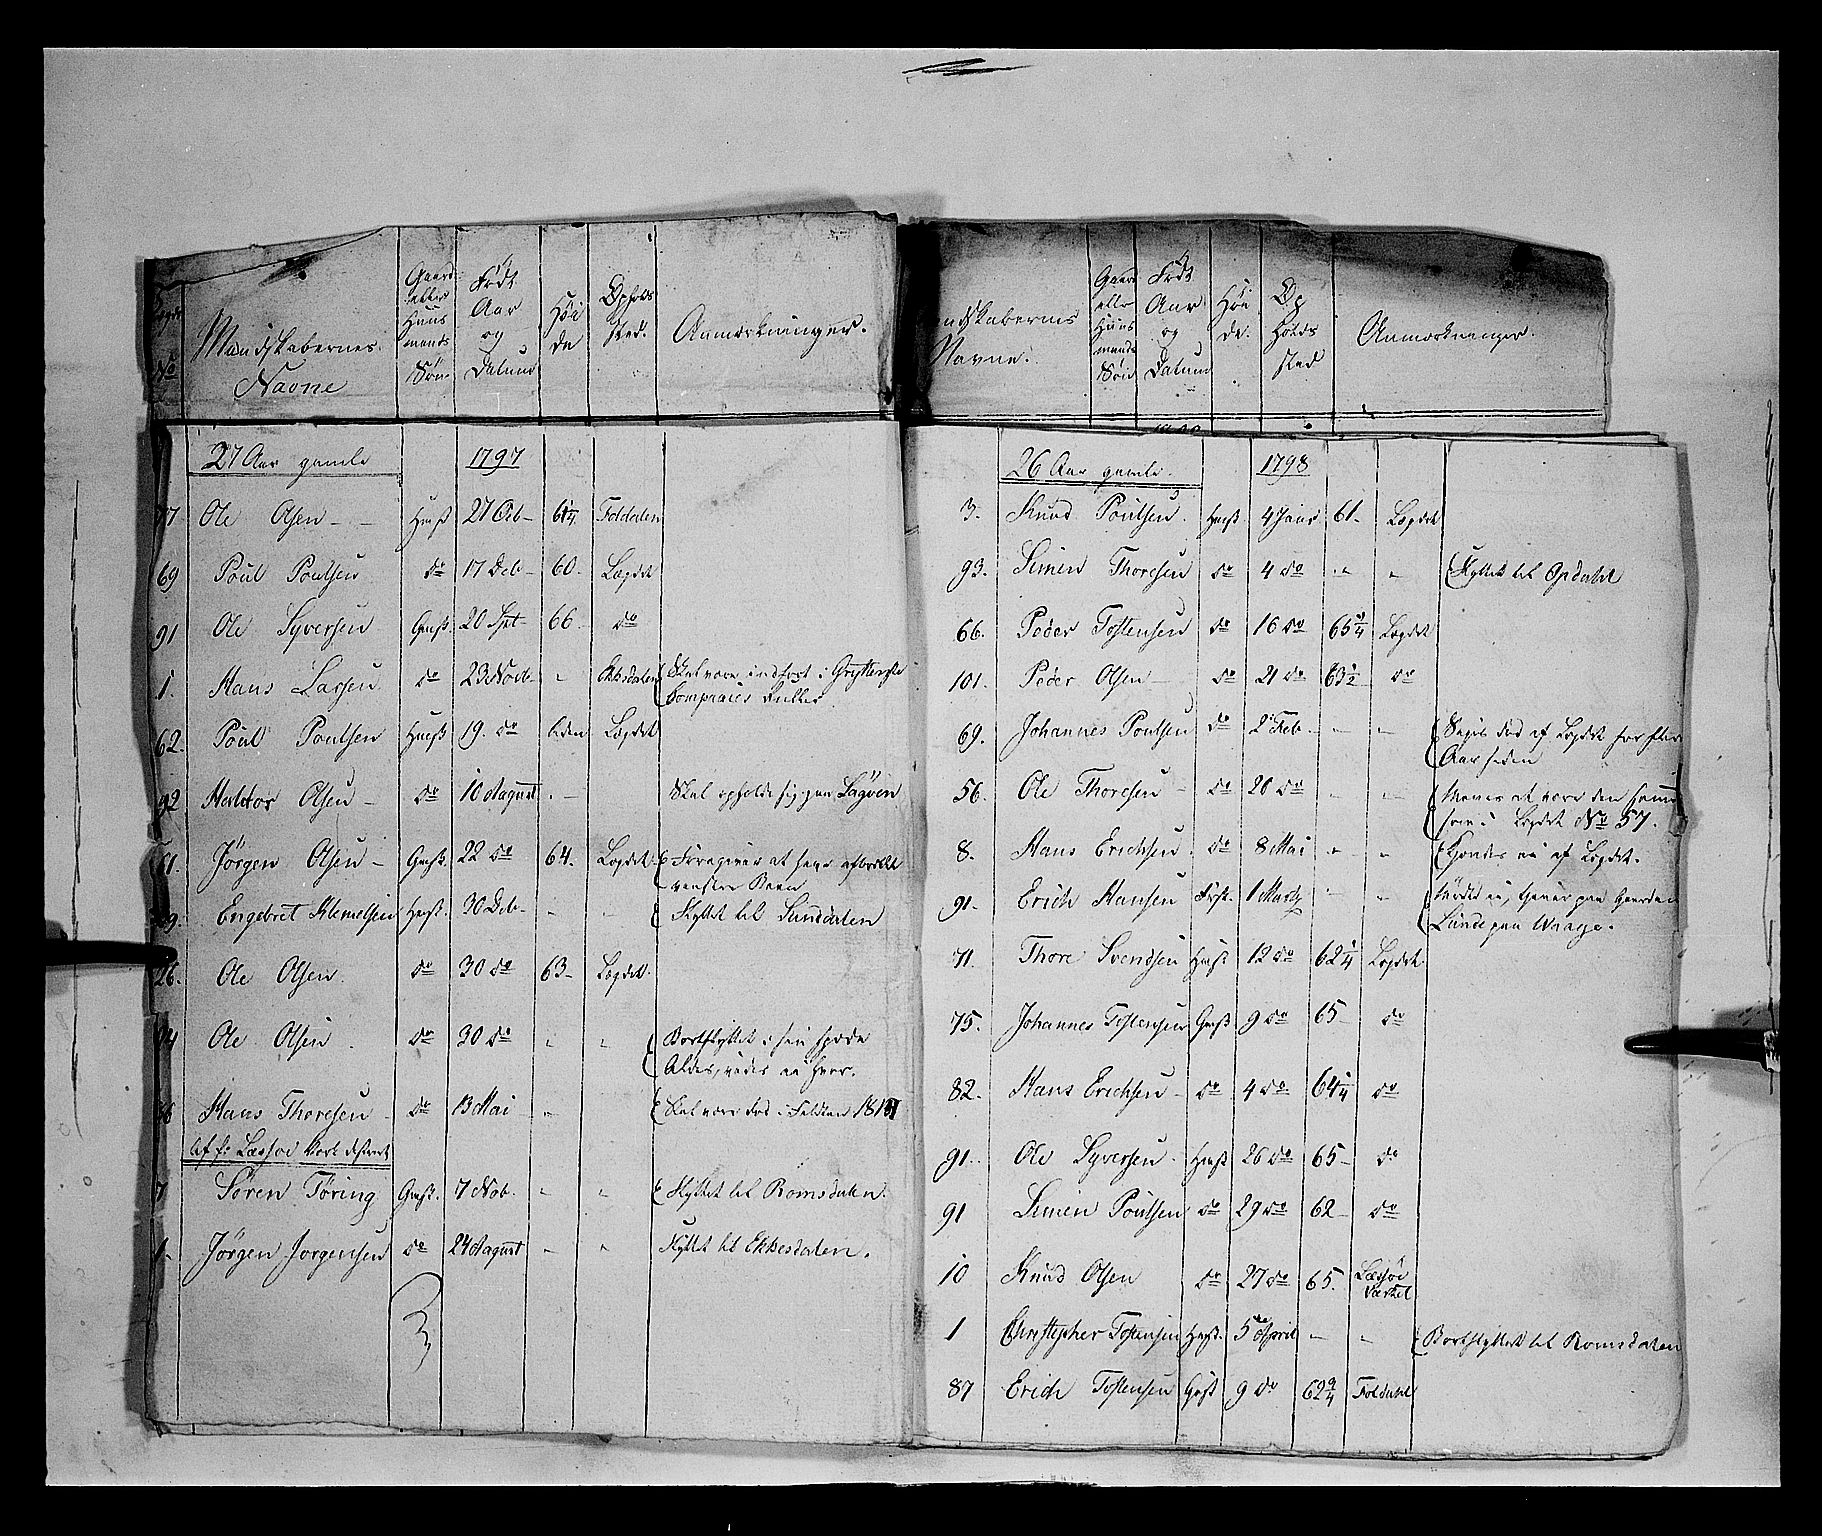 Mandskabernes
Navne
Gaard
eller
Huus
mands
Søn
Födt
Aar
og
Datum
Höi
de
Opholds
Sted
Anmærkninger.
27 Aar gamle 1797
Ole Olsen - Hmſ 27 Oct 61 1/4 Foldalen
69 Poul Poulsen do 17 Deb 60 Lægdet
91 Ole Syversen Gmſ. 20 Spt 66 do
1. Hans Larsen do 23 Nov - Ekkisdalen Skal være indført i
Compagnies Rulle
62. Poul Poulsen Hmſ 19. do Lægdet
92 Haldor Olsen - do 10 August - Skal opholde sig paa
61. Jørgen Olsen - Gmſ. 22 do 64. Lægdet Foregiver at have
venstre Been
Engebret Klemetsen Hmſ. 30 Deb - - flyttet til Sundalen
26. Ole Olsen. do 30 do 63 - Lægdet.
Ole Olsen. do 30 do - - Bortflyttet i sin spæde
Alder, vides ei hvor.
Hans Thoresen do 13 Mai - Skal være død i
Af Læssøe Værk
7 Søren Töring Gmſ. 7 Nob. - - flyttet til Romsdalen.
1 - Jørgen Jørgensen do 24 August - - flyttet til Ekkesdalen.
Mandskabernes
Navne.
Gaard
eller
Huus
mands
Søn
Födt
Aar
og
Datum
Höi
de.
Op
holds
sted
Anmærkninger.
26 Aar gamle. 1798
3. Knud Poulsen. Hmſ. 4 Janr 61 - Lægdet
93. Simen Thoresen do 4 do - - flyttet til Opdahl
66. Peder Tostensen do 16 do 65 3/4 Lægdet
101. Peder Olsen - do 21 do 63 1/2 do
69. Johannes Poulsen do 2 Feb - - Siges død af Lægdet for flere
Aar siden
56. Ole Thoresen - do 20 do - - Menes at være den samme
som i Lægdet No 57.
8. Hans Erichsen. do 8 Mai - - Lægdet.
91. Erich Hansen - 1 Marty - - ei, tjener paa Gaarden
Lunde paa Waage.
71. Thore Svendsen Hmſ 12 do 62 1/4 Lægdet.
75. Johannes Tostensen Gmſ 9 do 65 - do
82. Hans Erichsen - do 4 do 64 1/4 do
91. Ole Syversen - Hmſ 26 do 65 - do
91 Simen Poulsen do 29 do 62 - do
10 Knud Olsen do 27 do 65. Læssøe
Værket
1 Christopher Tostensen Hmſ. 5 April - - Bortflyttet til Romsdalen
87 Erich Tostensen Gmſ 9 do 62 Foldahl